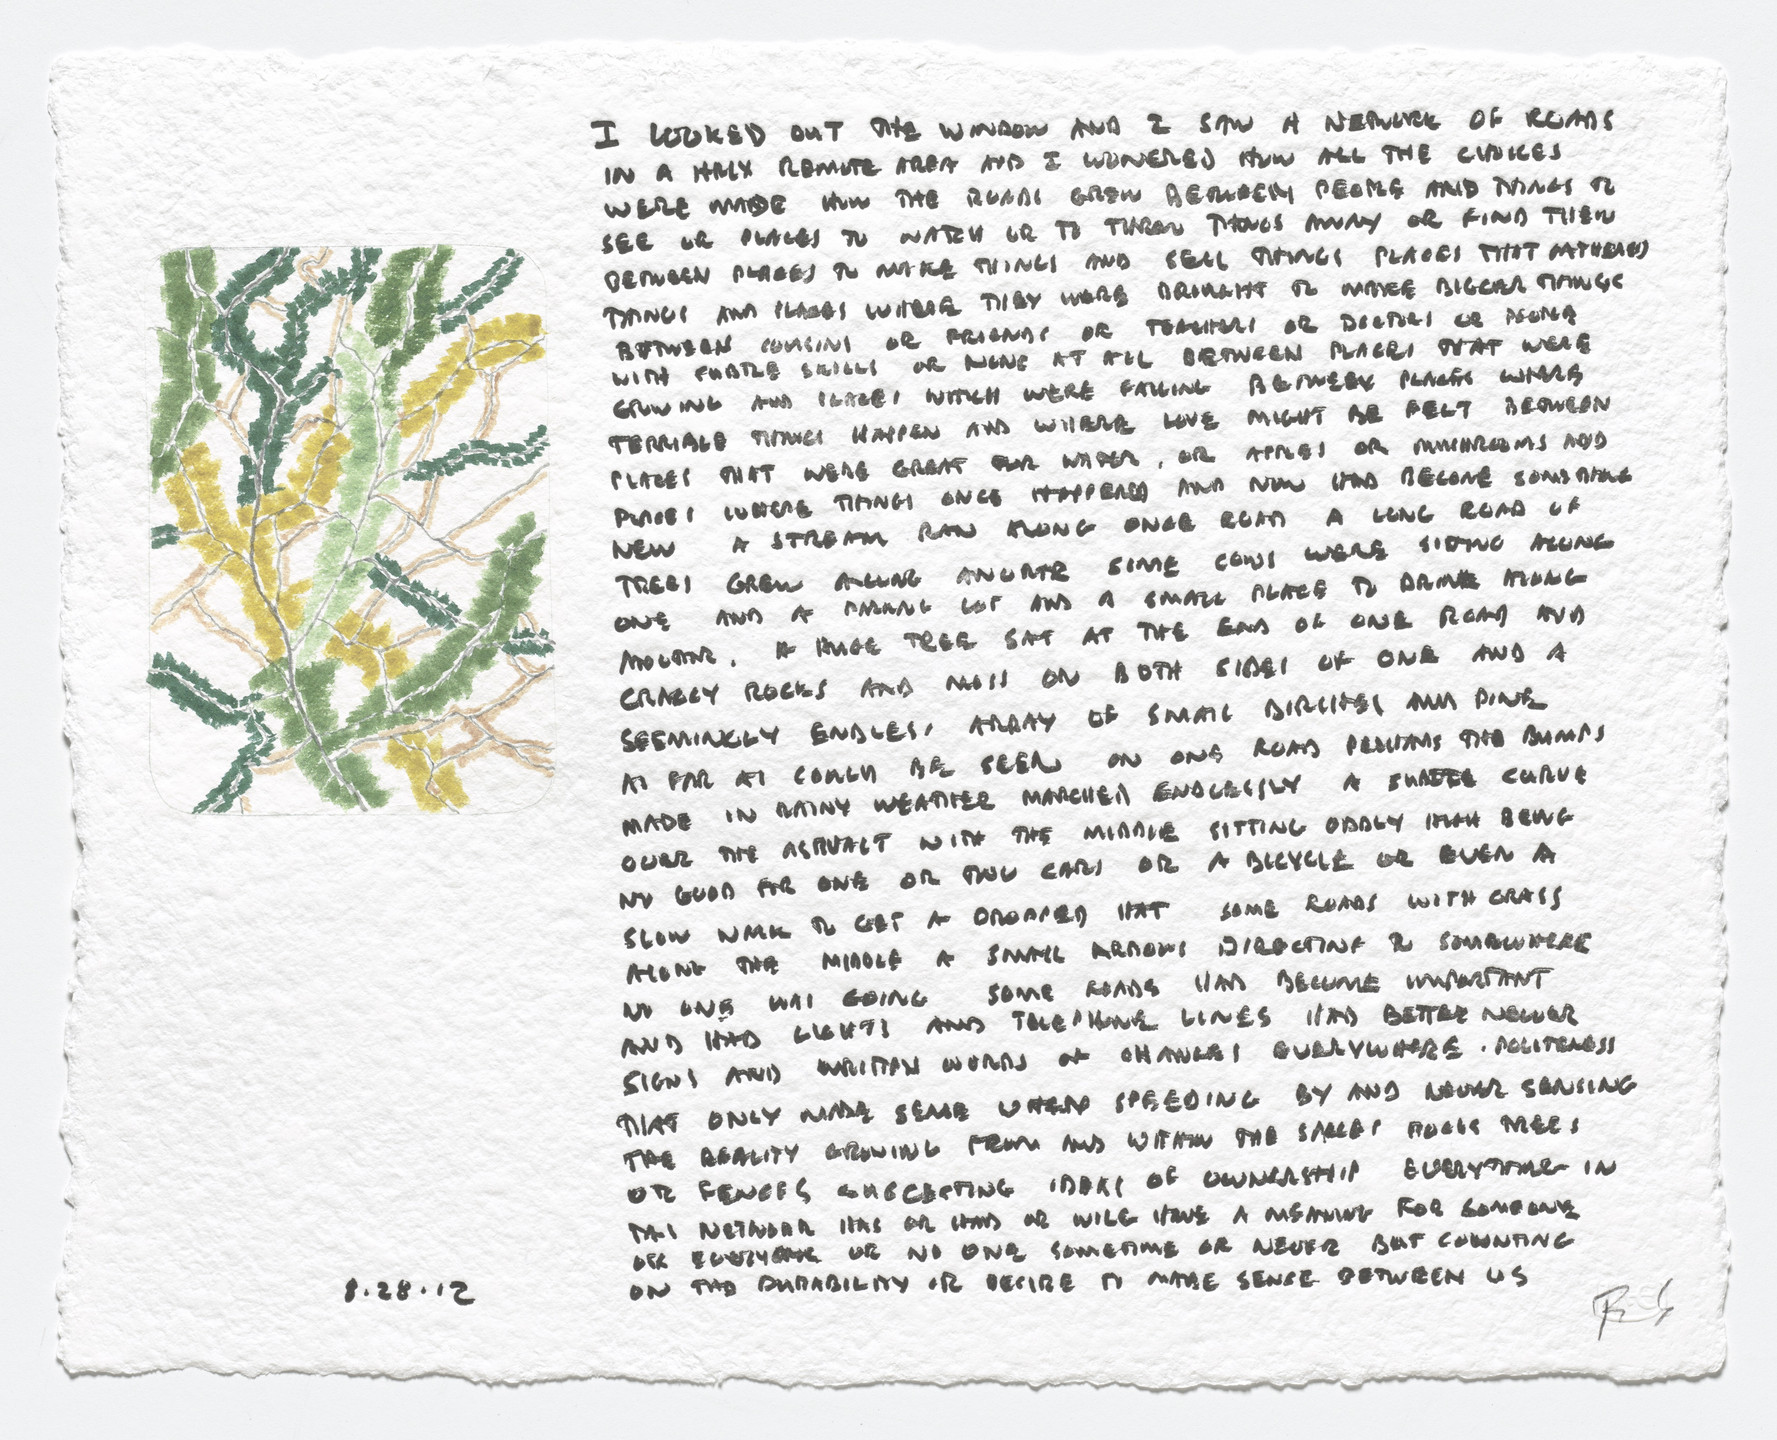 I LOOKED OUT THE WINDOW AND I SAW A NETWORK OF ROADS
IN A HILLY REMOTE AREA AND I WONERED HOW ALL THE CHOICES
WERE MADE HOW THE ROADS GREW BETWEEN PEOPLE AND THINGS TO
SEE OR PLACES TO WATCH OR TO THROW THINGS AWAY OR FIND THEM
BETWEEN PLACES TO MAKE THINGS AND SELL THINGS PLACES THAT GATHERED
THINGS AND PLACES WHERE THEY WERE BROUGHT TO MAKE BIGGER THINGS
BETWEEN COUSINS OR FRIENDS OR TEACHERS OR DOCTORS OR PEOPLE
WITH SUBTLE SKILLS OR NONE AT ALL BETWEEN PLACES THAT WERE
GROWING AND PLACES WHICH WERE FALLING BETWEEN PLACES WHERE
TERRIBLE THINGS HAPPEN AND WHERE LOVE MIGHT BE FELT BETWEEN
PLACES THAT WERE GREAT FOR WATER, OR APPLES OR MUSHROOMS AND
PLACES WHERE THINGS ONCE HAPPENED AND NOW HAD BECOME SOMETHING
NEW A STREAM RAN ALONG ONCE ROAD A LONG ROAD OF
TREES GREW ALONG ANOTHR SOME COWS WERE SITTING ALONG
ONE AND A PARKING LOT AND A SMALL PLACE TO DRINK ALONG
ANOTHR. A HUGE TREE SAT AT THE END OF ONE ROAD AND
CRAGGY ROCKS AND MOSS ON BOTH SIDES OF ONE AND A
SEEMINGLY ENDLESS ARRAY OF SMALL BIRCHES AND PINE
AS FAR AS COULD BE SEEN ON ONE ROAD PERHAPS THE BUMPS
MADE IN RAINY WEATHER MARCHED ENDLESSLY A SUBTLE CURVE
OVER THE ASPHALT WITH THE MIDDLE SITTING ODDLY HIGH BEING
NO GOOD FOR ONE OR TWO CARS OR A BICYCLE OR EVEN A
SLOW WALK TO GET A DROPPED HAT SOME ROADS WITH GRASS
ALONG THE MIDDLE A SMALL ARROWS DIRECTING TO SOMEWHERE
NO ONE WAS GOING SOME ROADS HAD BECOME IMPORTANT
AND HAD LIGHTS AND TELEPHONE LINES HAD BETTER NEWER
SIGNS AND WRITTEN WORDS OF CHANGES EVERYWHERE. POLITENESS
THAT ONLY MADE SENSE WHEN SPEEDING BY AND NEVER SENSING
THE REALITY GROWING FROM AND WITHIN THE SPACES ROCKS TREES
OR FENCES SUGGESTING IDEAS OF OWNERSHIP EVERYTHING IN
THIS NETWORK HAS OR HAD OR WILL HAVE A MEANING FOR SOMEONE
OR EVERYONE OR NO ONE SOMETIME OR NEVER BUT COUNTING
ON THE DURABILITY OR DESIRE TO MAKE SENSE BETWEEN US
8.28.12